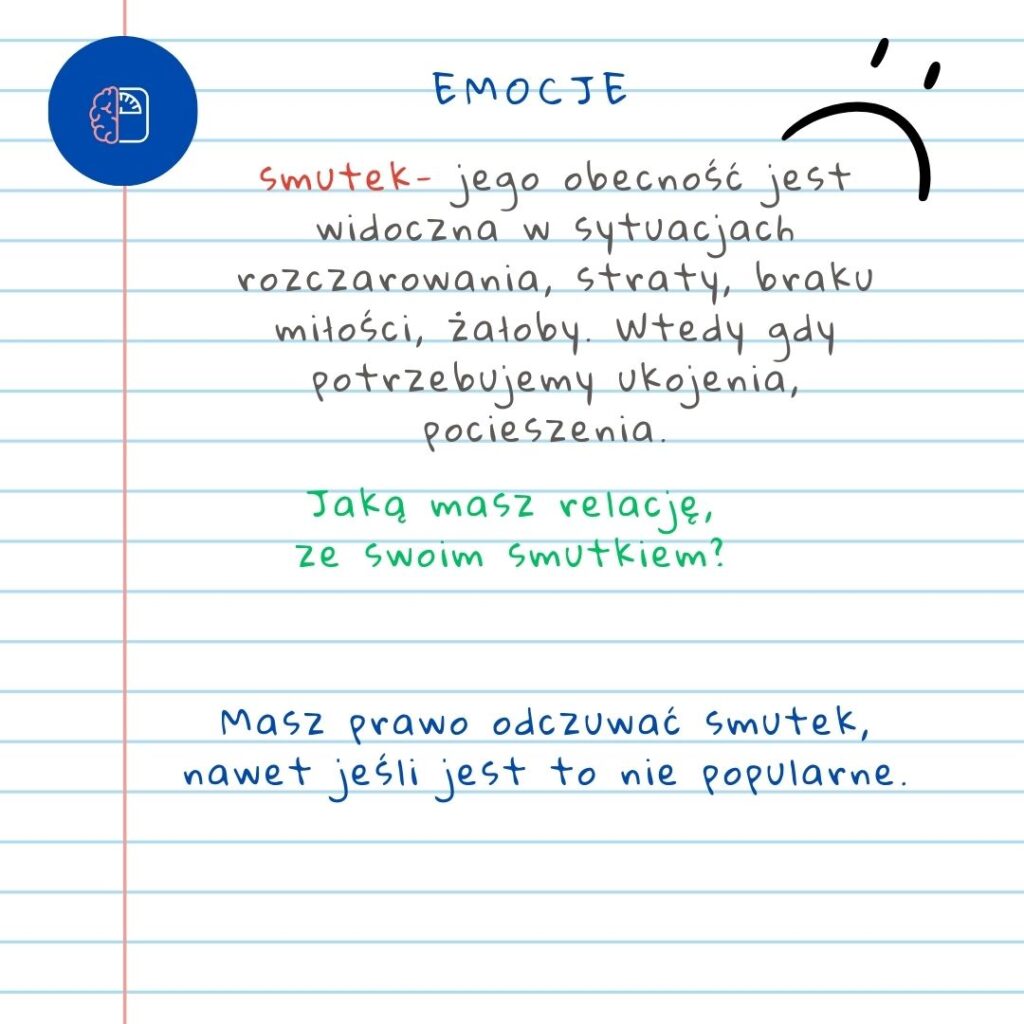 EMOCJE
smutek- jego obecność jest
widoczna w sytuacjach
rozczarowania, straty, braku
miłości, żałoby. Wtedy gdy
potrzebujemy ukojenia,
pocieszenia.
Jaką masz relację,
ze swoim smutkiem?
Masz prawo odczuwać smutek,
nawet jeśli jest to nie popularne.